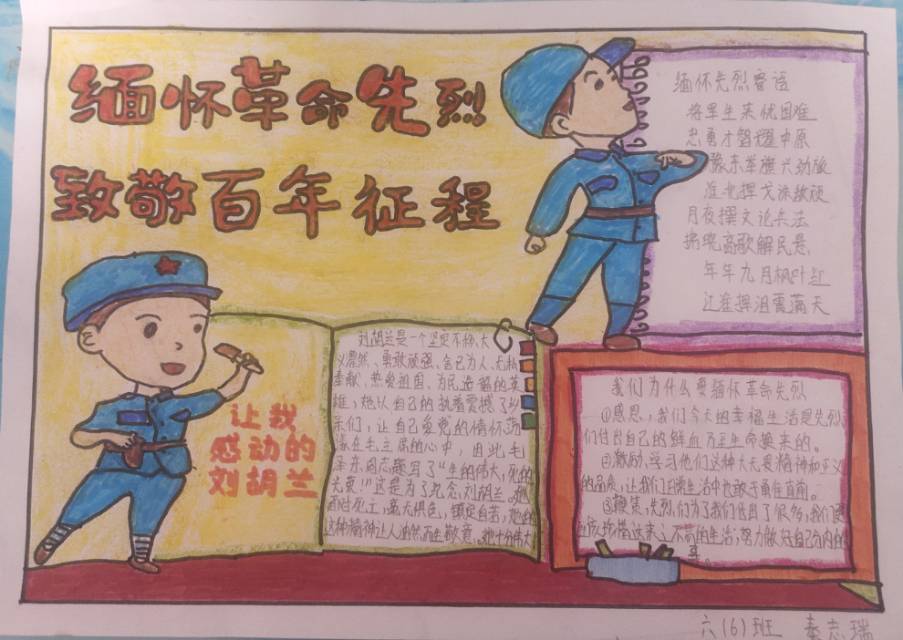 缅怀革命先烈
致敬百年征程
缅怀先烈寄语
将军生来优国难
忠勇才智耀中原
豫东举旗
淮北挥戈
月夜撰文论兵法
拂晓高歌解民悬
年年九月枫叶红
让我
感动的
刘胡兰
刘胡兰是一个坚定不移、大
义凛然、勇敢顽强、舍己为人、无私
奉献、热爱祖国、为民造福的英
雄,她以自己的执着震撼了
亲们,让自己爱党的情怀
在毛主席的心中,因此毛
泽东同志题写了“生的伟大,死的
光荣!”这是为了纪念刘胡兰。她
宁死
这种精神让人油然而生敬意。她十分伟大
我们为什么要缅怀革命先烈
①感恩,我们今天的幸福生活是先烈
们付出自己的鲜血乃至生命换来的。
②激励,学习他们这种大无畏精神和正义
的品质,让我们日常生活中也敢于勇往直前。
③鞭策,先烈们为了我们付出了很多,我们更
应该珍惜这来之不易的生活,努力做好自己分内的
事。
六(6)班 秦志瑞